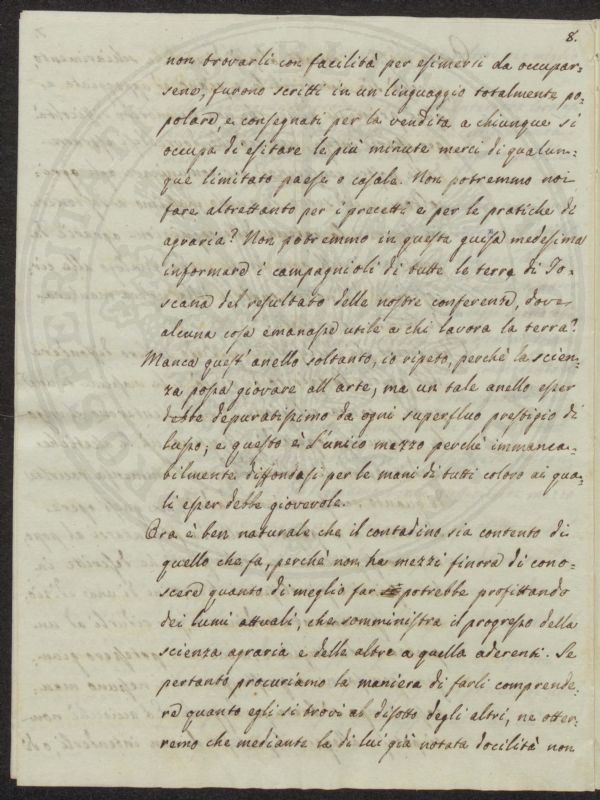 8.
non trovarli con facilità per esimersi da occupar-
sene, furono scritti in un linguaggio totalmente po-
polare, e consegnati per la vendita a chiunque si
occupa di esitare le più minute merci di qualun-
que limitato paese o casale. Non potremmo noi
fare altrettanto per i precetti e per le pratiche di
agraria? Non potremmo in questa guisa medesima
informare i campagnioli di tutte le terre di To-
scana del resultato delle nostre conferenze, dove
alcuna cosa emanasse utile a chi lavora la terra?
Manca quest'anello soltanto, io ripeto, perchè la scien-
za possa giovare all'arte, ma un tale anello esser
debbe depuratissimo da ogni superfluo prestigio di
lusso; e questo è l'unico mezzo perchè immanca-
bilmente diffondasi per le mani di tutti coloro ai qua-
li esser debbe giovevole.
Ora è ben naturale che il contadino sia contento di
quello che fa, perchè non ha mezzi finora di cono-
scere quanto di meglio far potrebbe profittando
dei lumi attuali, che somministra il progresso della
scienza agraria e delle altre a quella aderenti. Se
pertanto procuriamo la maniera di farli comprende-
re quanto egli si trovi al disotto degli altri, ne otter-
remo che mediante la di lui già notata docilità non